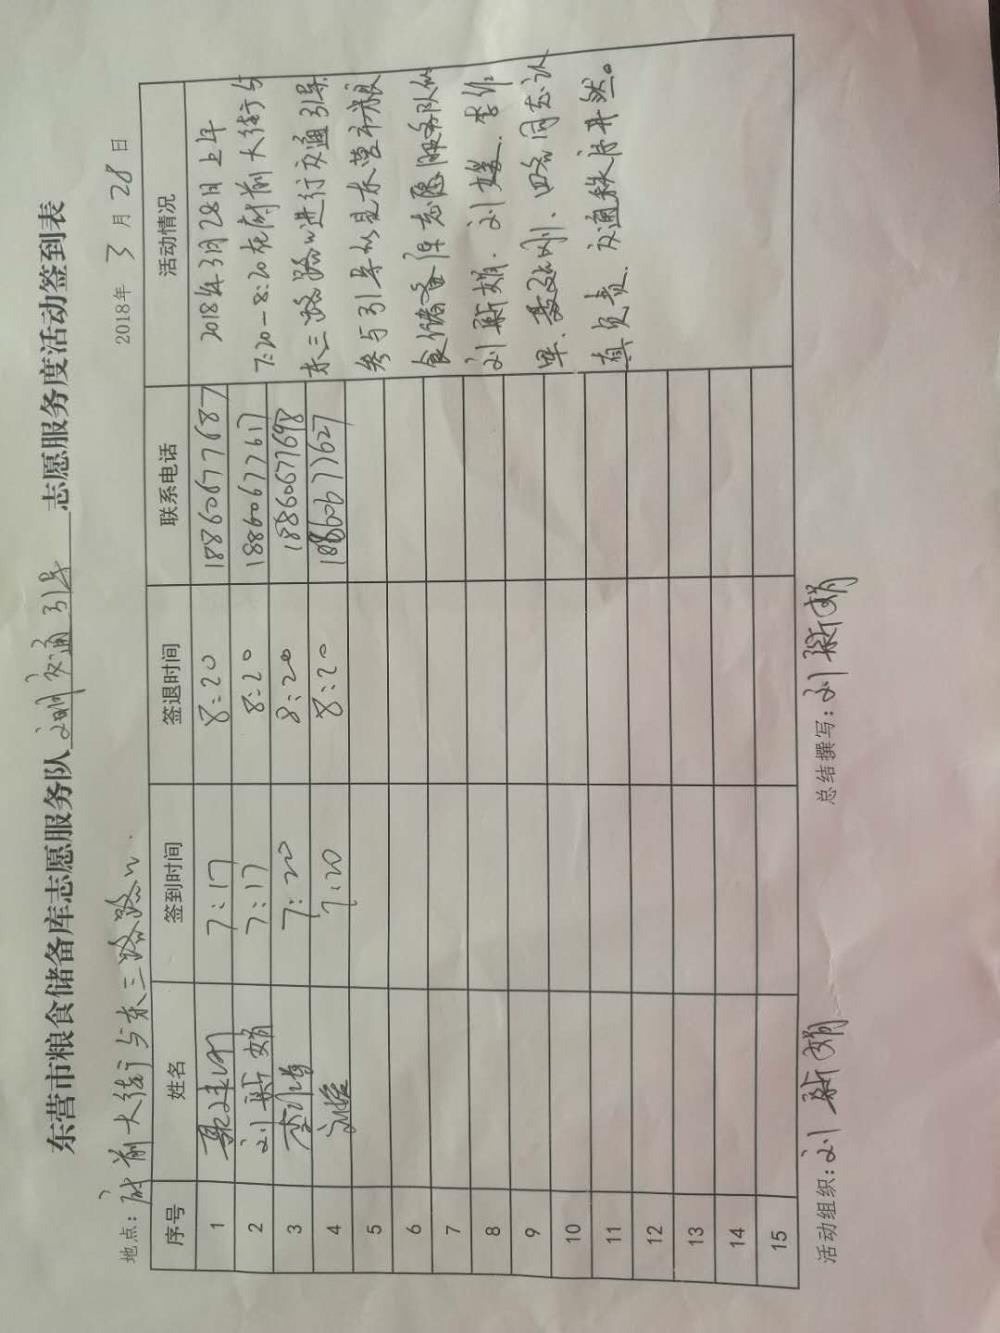 东营市粮食储备库志愿服务队 文明交通引导 志愿服务度活动签到表
地点：府前大街与东三路路口. 2018年 3 月 28 日
序号 姓名 签到时间 签退时间 联系电话 活动情况
1 7:17 8:20 18860677687 2018年3月28日上午
2 刘新娟 7:17 8:20 18860677617 7:20-8:20在府前大街与
3 7:20 8:20 18860677698 东三路路口进行交通引导.
4 刘媛 7:20 8:20 18860677627 参与引导的是东营市粮
5 食储备库志愿服务队的
6 刘新娟、刘媛、李作
7 四名同志认
8 真负责 交通秩序井然。
9
10
11
12
13
14
15
活动组织：刘新娟 总结撰写：刘新娟